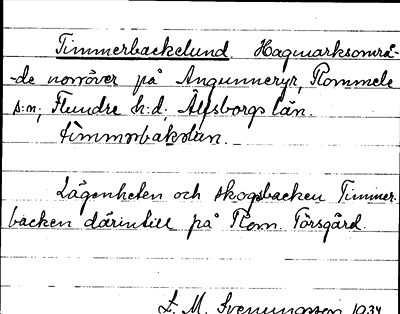 Timmerbackelund. Hagmarksområ-
-de norröver på Angunneryr, Rommele
s:n, Flundre h:d, Älfsborgs län.
Lägenheten och skogsbacken Timmer-
backen därintill på Rom. Torsgård.
L. M. Svenungsson 1934